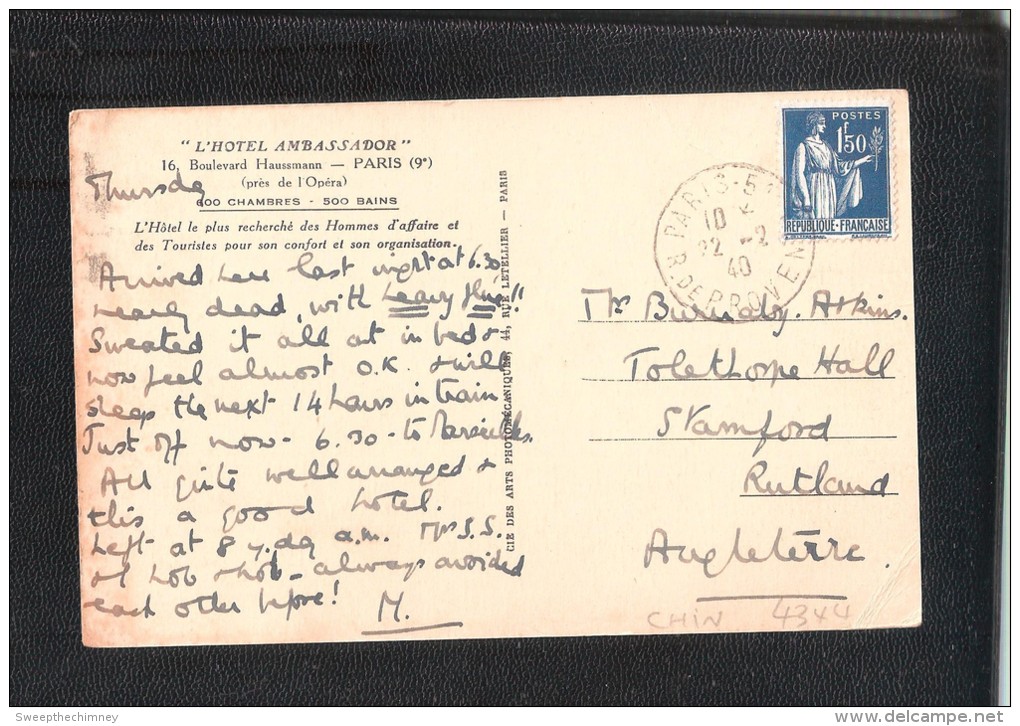 "L'HOTEL AMBASSADOR"
16, Boulevard Haussmann — PARIS (9e)
(près de l'Opéra)
600 CHAMBRES - 500 BAINS
L'Hôtel le plus recherché des Hommes d'affaire et
des Touristes pour son confort et son organisation.
Thursday
Arrived here last night at 6.30
nearly dead, with heavy !!
Sweated it all at in bed &
now feel almost O.K. & will
sleep the next 14 hours in train
Just off now - 6.30 - to Marseilles.
All quite well arranged &
this a good hotel.
Left at 8 y.day a.m. Mrs S.S.
always avoided
each other before!
M.
CIE DES ARTS PHOTOMÉCANIQUES, 44, RUE LETELLIER — PARIS
POSTES
1f50
REPUBLIQUE·FRANÇAISE
PARIS-5
10
22 -2
40
R. DE PROVENCE
Burnaby. Atkins.
Tolethorpe Hall
Stamford
Rutland
Angleterre.
CHIN 4344
Sweepthechimney
delcampe.net